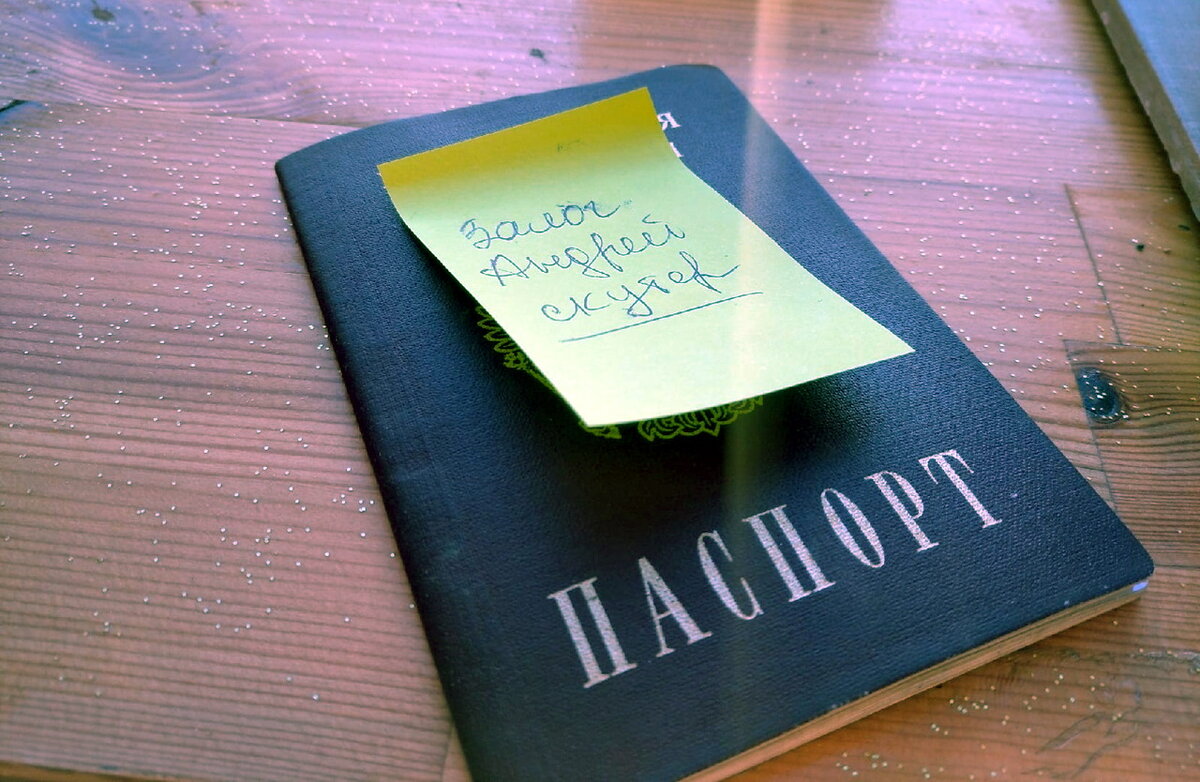 я
Залог
Андрей
скутер
ПАСПОРТ